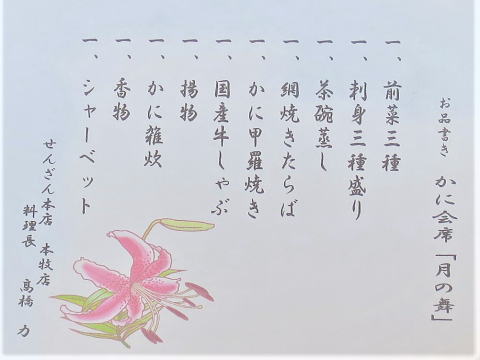 お品書き かに会席「月の舞」
一、前菜三種
一、刺身三種盛り
一、茶碗蒸し
一、網焼きたらば
一、かに甲羅焼き
一、国産牛しゃぶ
一、揚物
一、かに雑炊
一、香物
一、シャーベット
せんざん本店 本牧店
料理長 髙橋 力